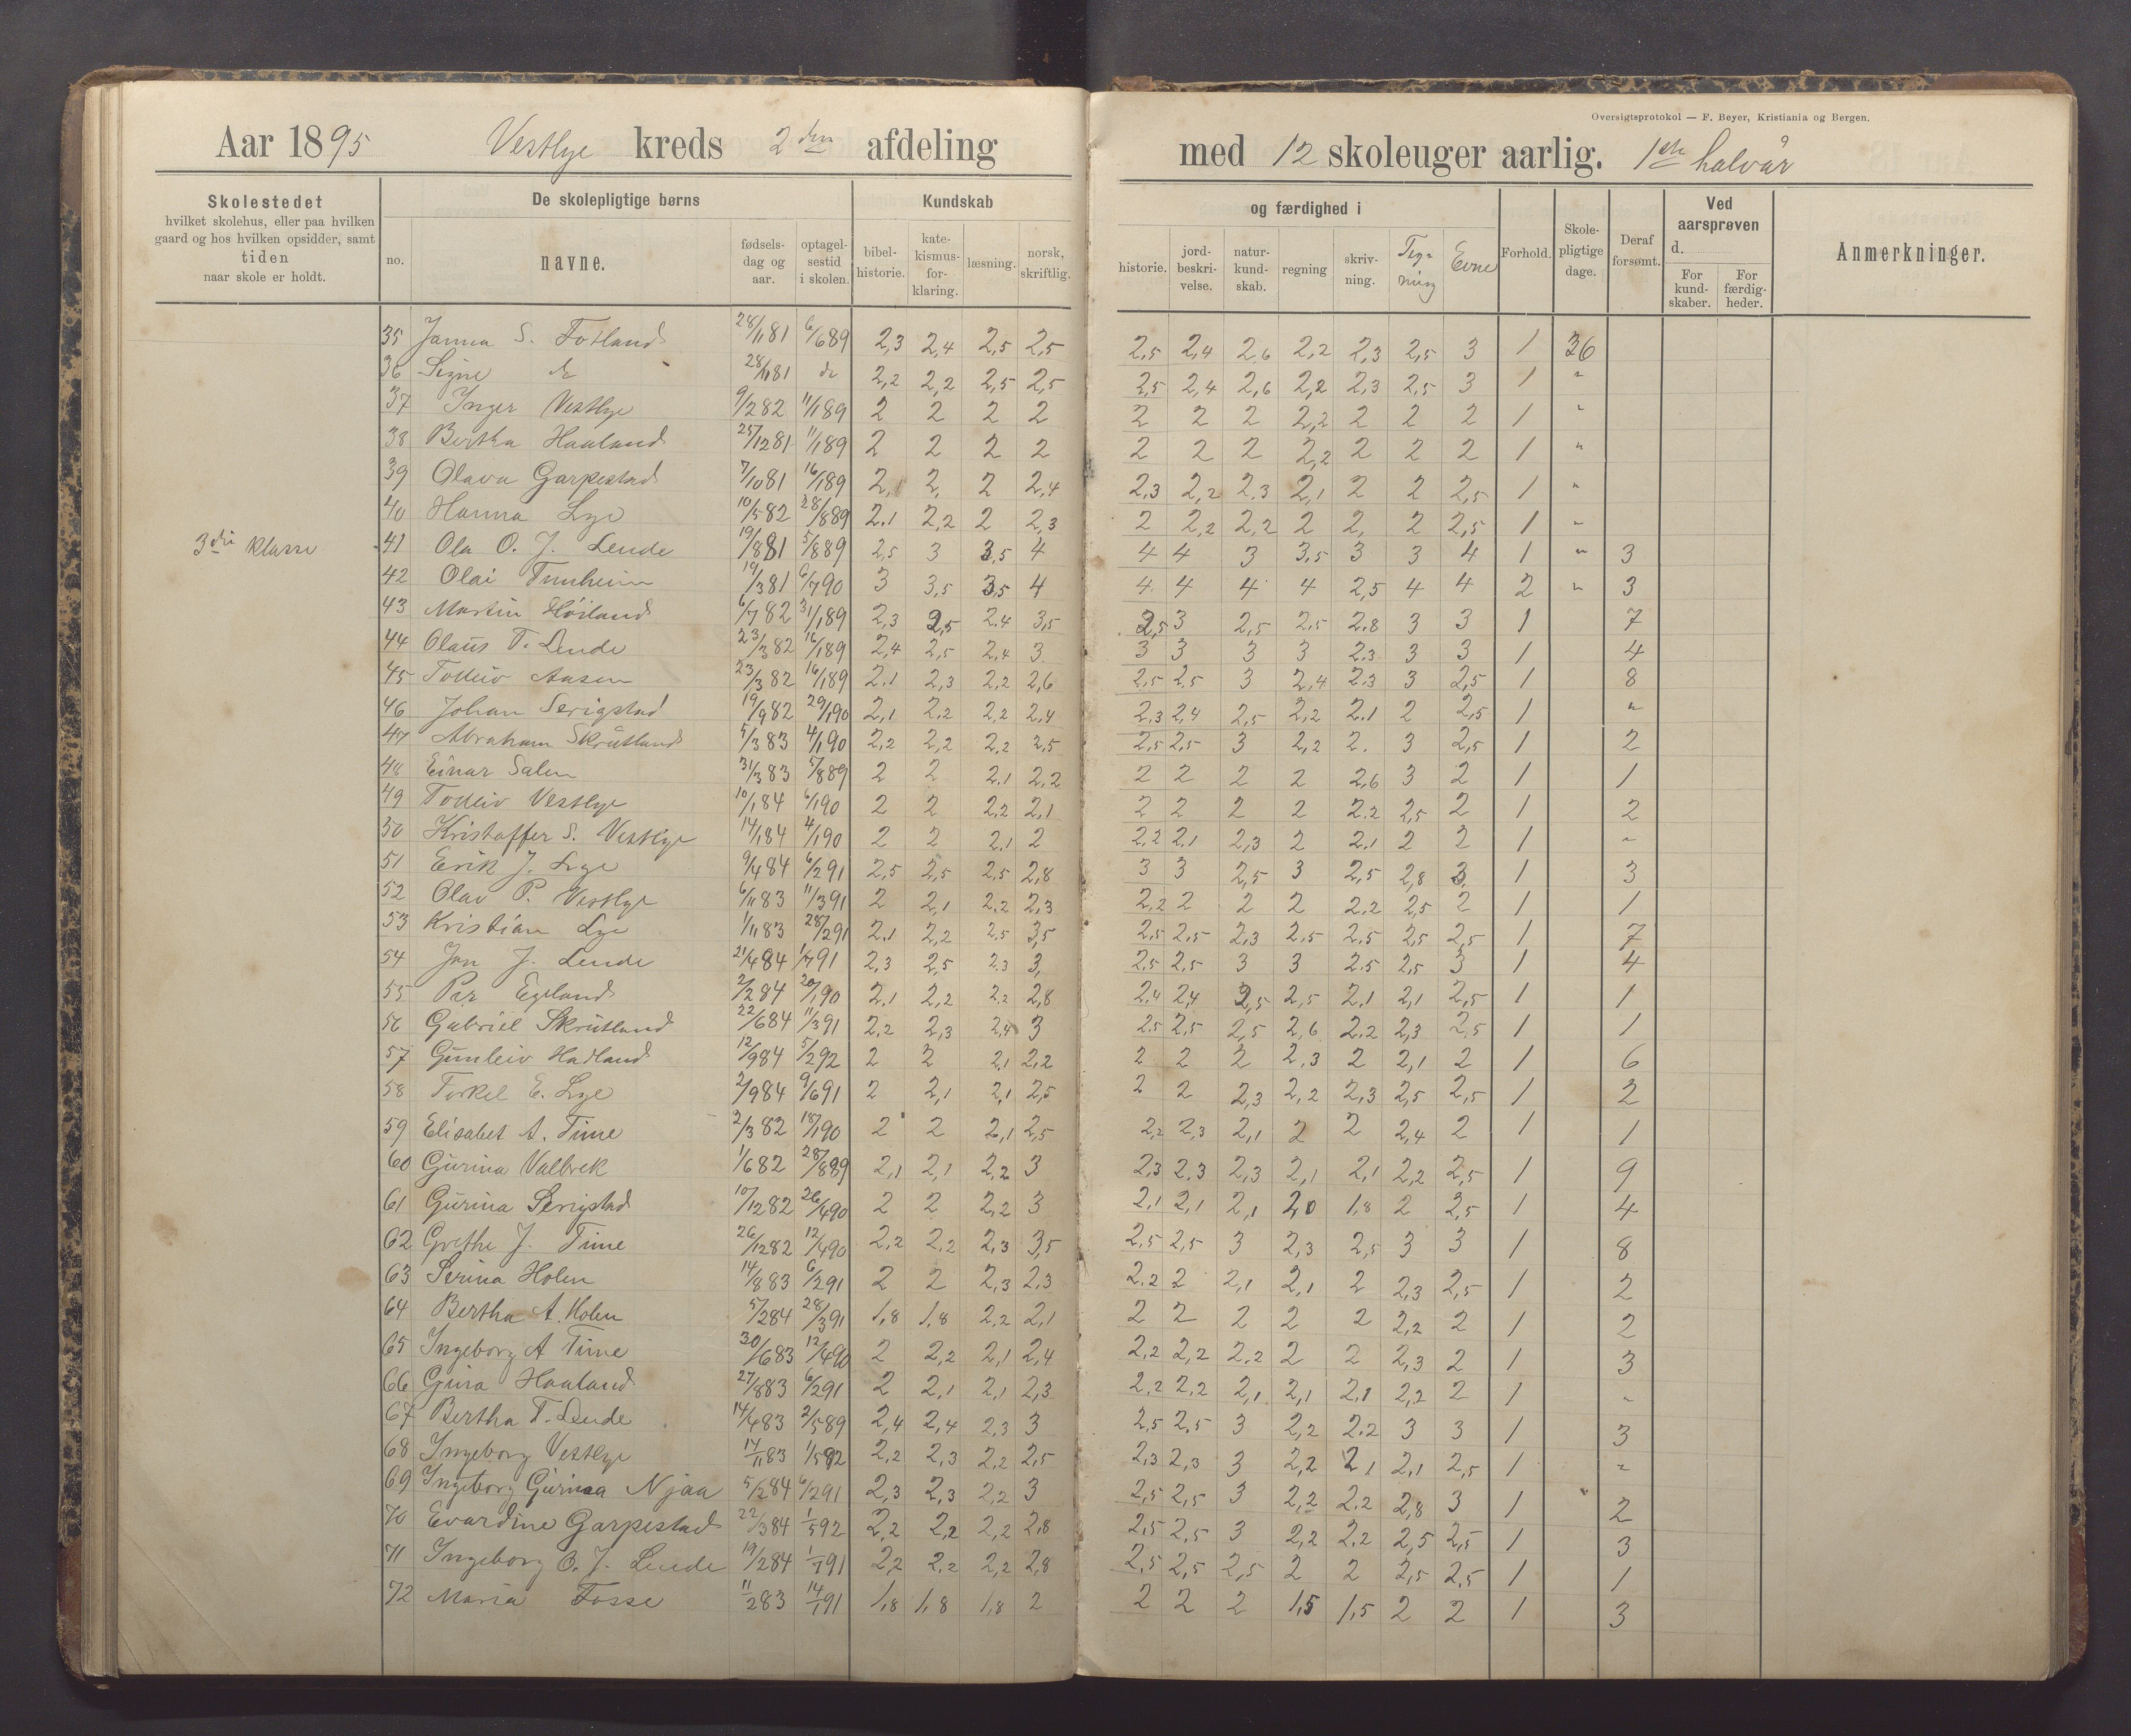 Oversigtsprotokol — F. Beyer, Kristiania og Bergen.
Aar 1895 Vestlye kreds 2den afdeling med 12 skoleuger aarlig. 1ste halvår
Skolestedet hvilket skolehus, eller paa hvilken gaard og hos hvilken opsidder, samt tiden naar skole er holdt.
De skolepligtige børns
no. navne. fødsels-dag og aar. optagel-sestid i skolen.
Kundskab og færdighed i
bibel-historie. kate-kismus-for-klaring. læsning. norsk, skriftlig. historie. jord-beskri-velse. natur-kund-skab. regning skriv-ning. Teg-ning Evne
Forhold. Skole-pligtige dage. Deraf forsømt.
Ved aarsprøven d. For kund-skaber. For færdig-heder.
Anmerkninger.
35 Janna S. Fotland 28/11 81 6/6 89 2,3 2,4 2,5 2,5 2,5 2,4 2,6 2,2 2,3 2,5 3 1 36
36 Signe do 28/11 81 do 2,2 2,2 2,5 2,5 2,5 2,4 2,6 2,2 2,3 2,5 3 1 "
37 Inger Vestlye 9/2 82 11/1 89 2 2 2 2 2 2 2 2,2 2 2 2 1 "
38 Bertha Haaland 25/12 81 11/1 89 2 2 2 2 2 2 2 2,2 2 2 2 1 "
39 Olava Garpestad 7/10 81 16/1 89 2, 2, 2 2,4 2,3 2,2 2,3 2,1 2 2 2,5 1 "
40 Hanna Lye 10/5 82 28/8 89 2.1 2,2 2 2,3 2 2,2 2,2 2 2, 2 2,5 1 "
3die klasse 41 Ola O. J. Lende 19/8 81 5/8 89 2,5 3 3,5 4 4 4 3 3,5 3 3 4 1 " 3
42 Olai Tunheim 19/3 81 6/7 90 3 3,5 3,5 4 4 4 4 4 2,5 4 4 2 " 3
43 Martin Höiland 6/7 82 31/1 89 2,3 2,5 2.4 3,5 2,5 3 2,5 2,5 2.8 3 3 1 7
44 Olaus T. Lende 23/3 82 16/1 89 2,4 2,5 2,4 3 3 3 3 3 2.3 3 3 1 4
45 Tolleiv Aasen 23/3 82 16/1 89 2.1 2,3 2,2 2,6 2,5 2,5 3 2,4 2.3 3 2,5 1 8
46 Johan Serigstad 19/9 82 29/1 90 2,1 2.2 2,2 2,4 2,3 2,4 2,5 2,2 2.1 2 2,5 1 "
47 Abraham Skrutland 5/3 83 4/1 90 2,2 2,2 2.2 2,5 2,5 2,5 3 2,2 2. 3 2,5 1 2
48 Einar Salen 31/3 83 5/8 89 2 2 2.1 2,2 2 2 2 2 2,6 3 2 1 1
49 Tolleiv Vestlye 10/1 84 6/1 90 2 2 2,2 2,1 2 2 2 2 2.2 2,5 2 1 2
50 Kristoffer S. Vestlye 14/1 84 4/1 90 2 2 2.1 2 2,2 2.1 2,3 2 2.1 2 2 1 "
51 Erik J. Lye 9/4 84 6/2 91 2,5 2,5 2,5 2,8 3 3 2,5 3 2,5 2,8 3. 1 3
52 Olav P. Vestlye 6/11 83 11/3 91 2 2,1 2.2 2,3 2,2 2 2 2 2.2 2,5 2 1 1
53 Kristian Lye 1/11 83 28/2 91 2.1 2,2 2,5 3,5 2,5 2,5 2,3 2,5 2,5 2,5 2,5 1 7
54 Jon J. Lende 21/4 84 1/7 91 2,3 2,5 2.3 3, 2,5 2,5 3 3 2.5 2,5 3 1 4
55 Per Egeland 2/2 84 20/1 90 2,1 2,2 2.2 2,8 2,4 2,4 2,5 2,5 2.1 2,1 2,5 1 1
56 Gabriel Skrutland 22/6 84 11/3 91 2,2 2,3 2,4 3 2,5 2,5 2,5 2,6 2.2 2,3 2,5 1 1
57 Gunleiv Hadland 12/9 84 5/2 92 2 2 2,1 2,2 2 2 2 2,3 2 2,1 2 1 6
58 Torkel E. Lye 2/9 84 9/6 91 2 2,1 2,1 2,5 2 2 2,3 2,2 2,3 2,5 2,5 1 2
59 Elisabet A. Time 2/3 82 18/1 90 2 2 2,1 2,5 2,2 2,3 2,1 2 2 2,4 2 1 1
60 Gurina Valbrek 1/6 82 28/8 89 2,1 2,1 2,2 3 2,3 2.3 2,3 2,1 2,1 2,2 2,5 1 9
61 Gurina Serigstad 10/12 82 26/4 90 2 2 2,2 3 2,1 2,1 2,1 2,0 1,8 2 2,5 1 4
62 Grethe J. Time 26/12 82 12/4 90 2,2 2,2 2,3 3,5 2,5 2,5 3 2,3 2,5 3 3 1 8
63 Serina Holen 14/8 83 6/2 91 2 2 2,3 2,3 2.2 2 2,1 2,1 2 2,3 2,5 1 2
64 Bertha A. Holen 5/2 84 28/3 91 1,8 1,8 2,2 2,1 2 2 2 2 2 2,2 2 1 2
65 Ingeborg A Time 30/6 83 12/4 90 2 2,2 2,1 2,4 2.2 2,2 2.2 2 2 2,3 2 1 3
66 Gina Haaland 27/8 83 6/2 91 2 2,1 2,1 2,3 2,2 2,2 2,1 2,1 2,1 2,2 2 1 "
67 Bertha T. Lende 14/4 83 2/5 89 2,4 2,4 2,3 3 2,5 2,5 3 2,2 2.2 3 3 1 3
68 Ingeborg Vestlye 14/11 83 1/5 92 2,2 2,3 2,2 2,5 2,3 2,3 3 2,2 2,1 2,1 2,5 1 "
69 Ingeborg Gurina Njaa 5/2 84 6/2 91 2,3 2,3 2,2 3 2,5 2,5 3 2,2 2.2 2,8 3 1 2
70 Evardine Garpestad 22/3 84 1/5 92 2,2 2,2 2,2 2,8 2,5 2,5 3 2,2 2,2 2,5 2,5 1 3
71 Ingeborg O. J. Lende 19/2 84 1/7 91 2,2 2,2 2,2 2,8 2,5 2,5 2,5 2 2 2,5 2,5 1 1
72 Maria Fosse 11/2 83 14/1 91 1,8 1,8 1,8 2 2 2 2 1,5 1,5 2 2 1 3